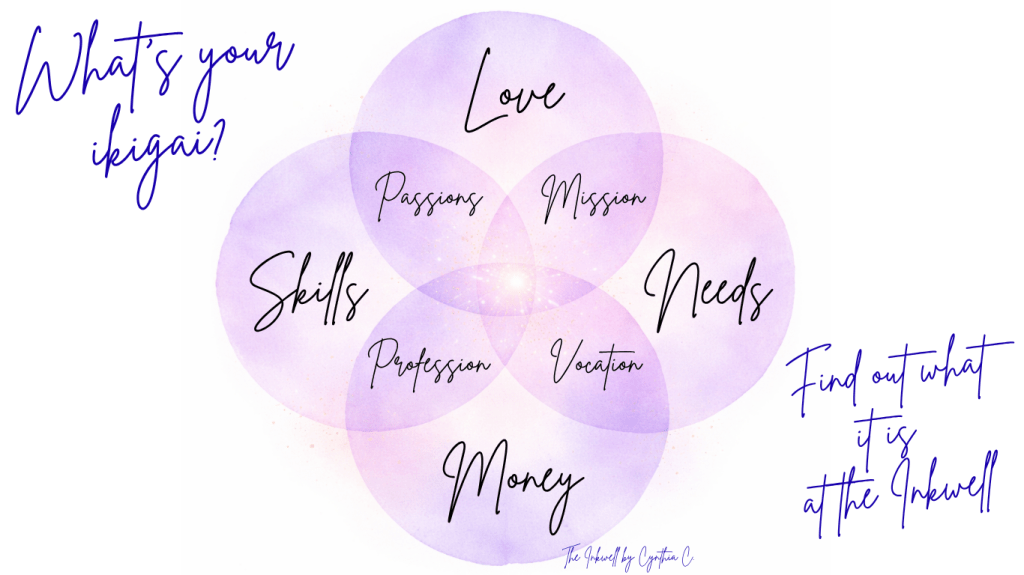 What's your
ikigai?
Love
Passions
Mission
Skills
Needs
Profession
Vocation
Money
Find out what
it is
at the Inkwell
The Inkwell by Cynthia C.